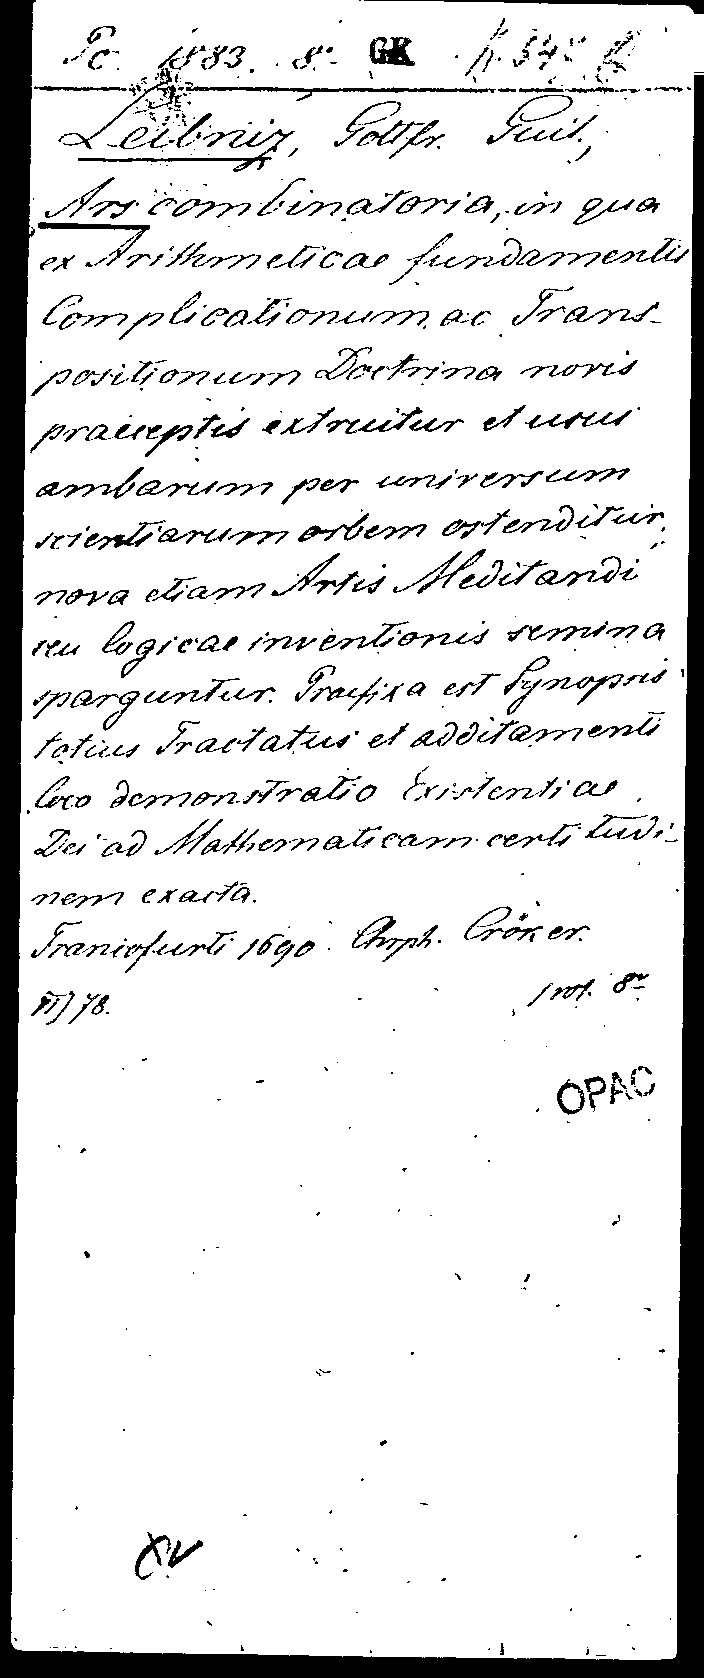 Pc. 1883. 8°. GK
Leibniz, Gottfr. Guil.,
Ars combinatoria, in qua
ex Arithmeticae fundamentis
Complicationum ac Trans-
positionum Doctrina novis
praeceptis extruitur et usus
ambarum per universum
scientiarum orbem ostenditur,
nova etiam Artis Meditandi
seu logicae inventionis semina
sparguntur. Praefixa est Synopsis
totius Tractatus et additamenti
loco demonstratio Existentiae
Dei ad Mathematicam certitudi-
nem exacta.
Francofurti 1690. Chrph. Cröker.
78. 8°
OPAC
XV